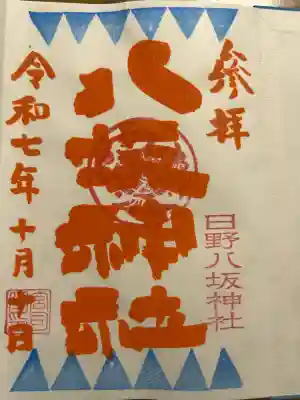 参拝
日野八坂神社
八坂神社
令和七年十月十日